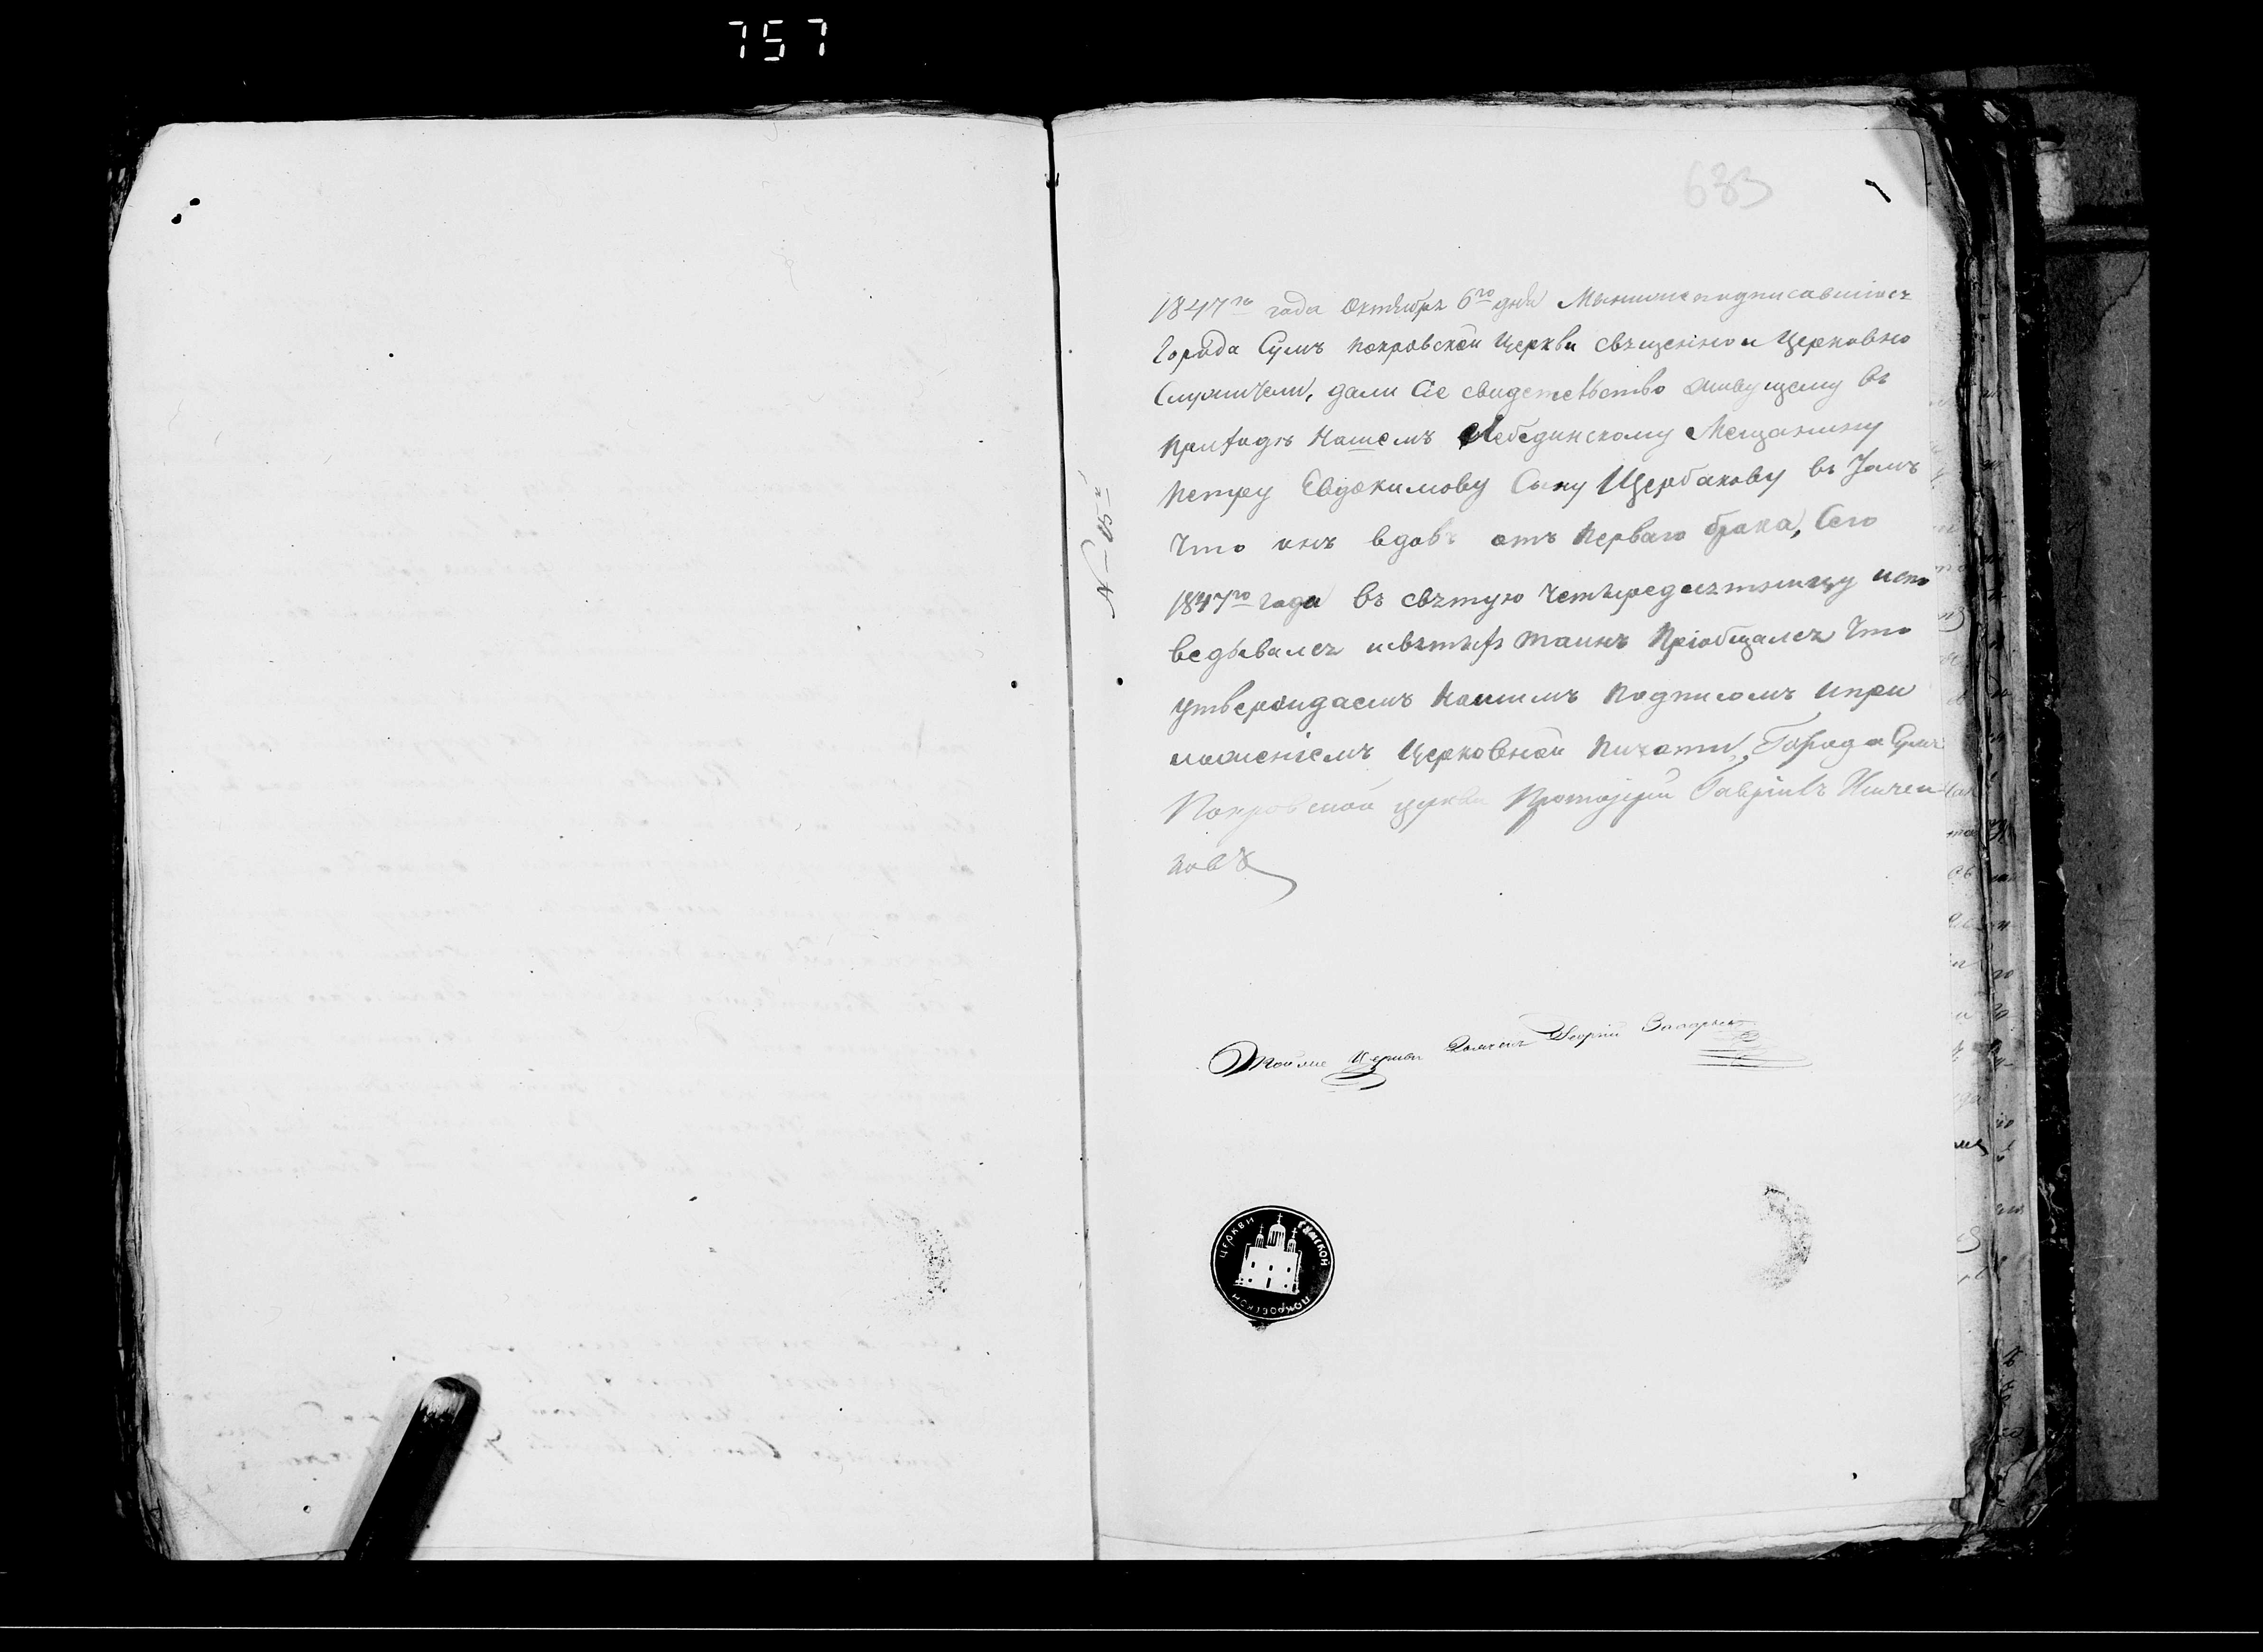 757
633
1847го года Октября 6го дня Мы нижеподписавшіеся
Города Сумъ Покровской Церкви священно и Церковно
Служители, дали Сіе свидетельство живущему въ
Приходѣ Нашемъ Лебединскому Мещанину
Петру Евдокимову Сыну Щербакову въ Томъ
Что онъ вдовъ отъ Перваго брака, Сего
1847го года въ святую Четыредесятницу испо
ведывался и святыхъ таинъ Пріобщался Что
утверждаемъ Нашимъ Подписомъ и при
ложеніемъ Церковной Печати, Города Сумъ
Покровской церкви Протоіерей Гавріилъ
новъ
Той же Церкви Георгій
ЦЕРКВИ СУМСКОЙ ПОКРОВСКОЙ